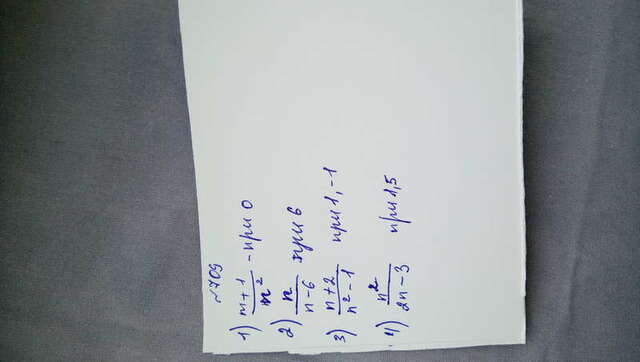 №709
1) m+1/m² - при 0
2) n/n-6 при 6
3) n+2/n²-1 при 1, -1
4) n²/2n-3 при 1,5